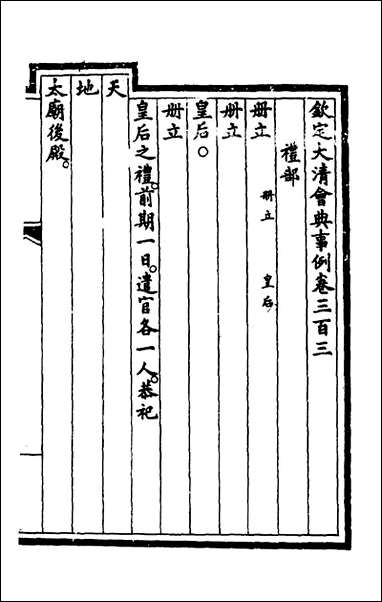 欽定大清會典事例卷三百三
禮部
冊立 冊立 皇后
冊立
皇后○
冊立
皇后之禮。前期一日。遣官各一人。恭祀
天
地
太廟後殿。